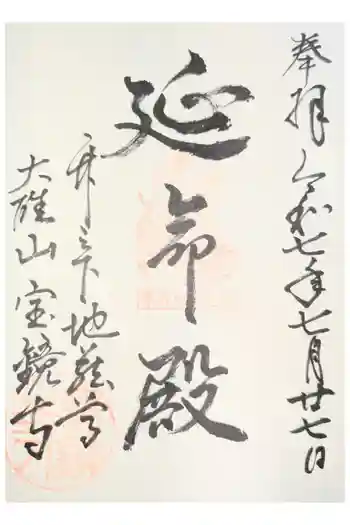 奉拝 令和七年七月廿七日
延命殿
床下地蔵尊
大雄山宝鏡寺